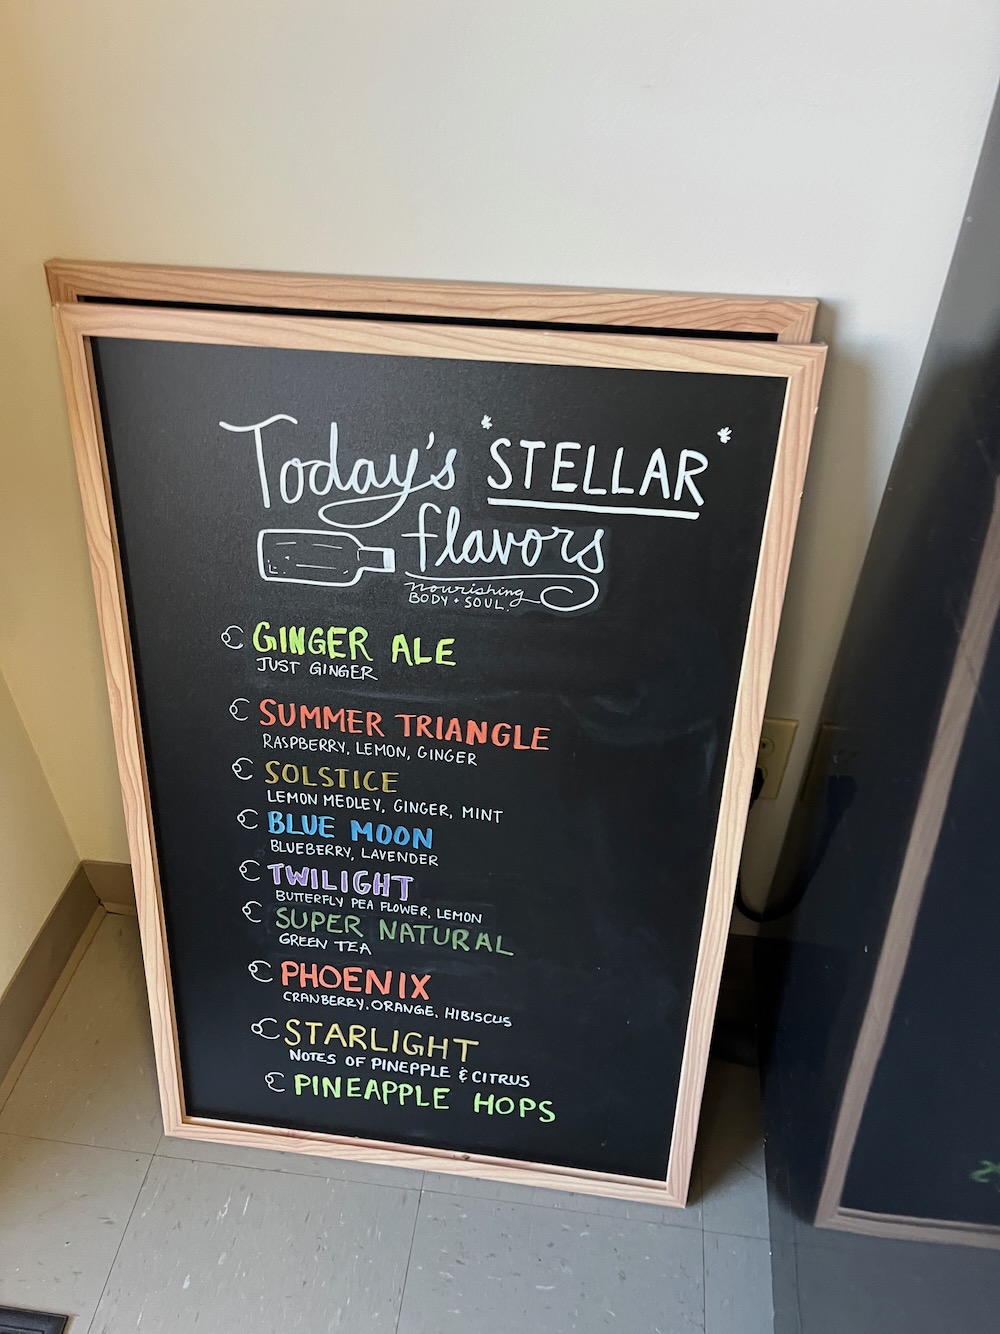 Today's *STELLAR*
flavors
nourishing
BODY + SOUL.
GINGER ALE
JUST GINGER
SUMMER TRIANGLE
RASPBERRY, LEMON, GINGER
SOLSTICE
LEMON MEDLEY, GINGER, MINT
BLUE MOON
BLUEBERRY, LAVENDER
TWILIGHT
BUTTERFLY PEA FLOWER, LEMON
SUPER NATURAL
GREEN TEA
PHOENIX
CRANBERRY, ORANGE, HIBISCUS
STARLIGHT
NOTES OF PINEPPLE & CITRUS
PINEAPPLE HOPS